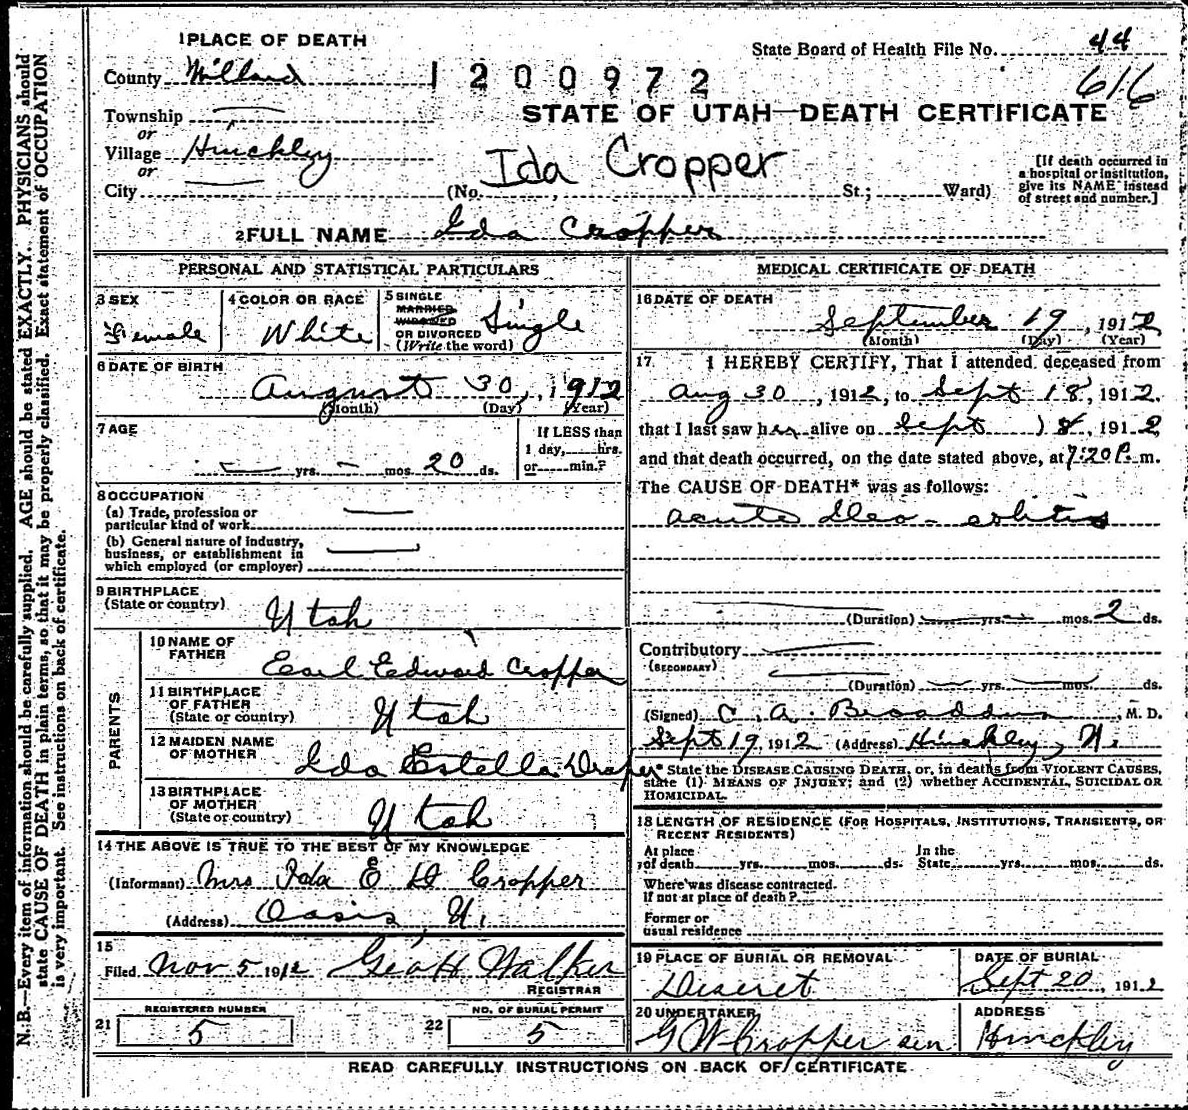 1 PLACE OF DEATH
State Board of Health File No. 44
County Millard
1200972
616
STATE OF UTAH—DEATH CERTIFICATE
Township
or
Village Hinckley
or
City
(No. St.; Ward)
Ida Cropper
[If death occurred in
a hospital or institution,
give its NAME instead
of street and number.]
2 FULL NAME Ida Cropper
PERSONAL AND STATISTICAL PARTICULARS
3 SEX
Female
4 COLOR OR RACE
White
5 SINGLE
MARRIED
WIDOWED
OR DIVORCED
(Write the word)
Single
6 DATE OF BIRTH
August 30, 1912
(Month) (Day) (Year)
7 AGE
yrs. mos. 20 ds.
If LESS than
1 day, hrs.
or min.?
8 OCCUPATION
(a) Trade, profession or
particular kind of work
(b) General nature of industry,
business, or establishment in
which employed (or employer)
9 BIRTHPLACE
(State or country)
Utah
PARENTS
10 NAME OF
FATHER
Earl Edward Cropper
11 BIRTHPLACE
OF FATHER
(State or country)
Utah
12 MAIDEN NAME
OF MOTHER
Ida Estella Draper
13 BIRTHPLACE
OF MOTHER
(State or country)
Utah
14 THE ABOVE IS TRUE TO THE BEST OF MY KNOWLEDGE
(Informant) Mrs Ida E D Cropper
(Address) Oasis U.
15
Filed Nov 5 1912 Geo H Walker
REGISTRAR
REGISTERED NUMBER
21 5
NO. OF BURIAL PERMIT
22 5
MEDICAL CERTIFICATE OF DEATH
16 DATE OF DEATH
September 19, 1912
(Month) (Day) (Year)
17 I HEREBY CERTIFY, That I attended deceased from
Aug 30, 1912, to Sept 18, 1912.
that I last saw her alive on Sept 18, 1912
and that death occurred, on the date stated above, at 7:20 P. m.
The CAUSE OF DEATH* was as follows:
Acute Ileo-colitis
(Duration) yrs. mos. 2 ds.
Contributory
(SECONDARY)
(Duration) yrs. mos. ds.
(Signed) C. A. Broaddus, M. D.
Sept 19, 1912 (Address) Hinckley, U.
* State the DISEASE CAUSING DEATH, or, in deaths from VIOLENT CAUSES,
state (1) MEANS OF INJURY; and (2) whether ACCIDENTAL, SUICIDAL OR
HOMICIDAL.
18 LENGTH OF RESIDENCE (FOR HOSPITALS, INSTITUTIONS, TRANSIENTS, OR
RECENT RESIDENTS)
At place
of death yrs. mos. ds.
In the
State yrs. mos. ds.
Where was disease contracted.
If not at place of death?
Former or
usual residence
19 PLACE OF BURIAL OR REMOVAL
Deseret
DATE OF BURIAL
Sept 20, 1912
20 UNDERTAKER
G W Cropper sen
ADDRESS
Hinckley
READ CAREFULLY INSTRUCTIONS ON BACK OF CERTIFICATE
N. B.—Every item of information should be carefully supplied. AGE should be stated EXACTLY. PHYSICIANS should
state CAUSE OF DEATH in plain terms, so that it may be properly classified. Exact statement of OCCUPATION
is very important. See instructions on back of certificate.